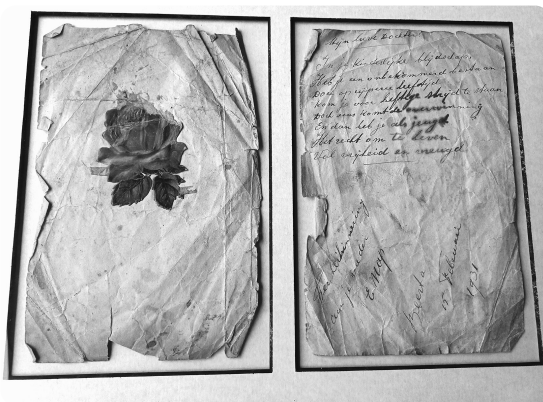 Mijn lieve Dochter.
In je kinderlijke blijdschap,
Heb je een onbekommerd bestaan
Doch op rijpere leeftijd
Kom je voor heftige strijd te staan
Doch ons komt de overwinning
En dan heb je als jeugd
Het recht om te leven
Vol vrijheid en vreugd.
Ter herinnering
aan je vader
E. May
Breda
15 Februari
1931